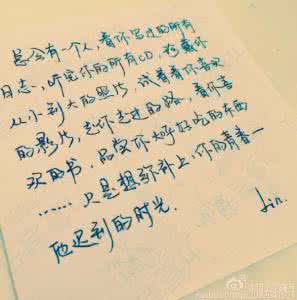 总会有一个人，看你写过的所有
日志，听完你的所有CD，挖着你
从小到大的照片，试着看你喜欢
的影片，走你走过的路，看你喜
欢的书，品尝你大呼好吃的东西
……只是想弥补上，你的青春——
他迟到的时光.
Lin.